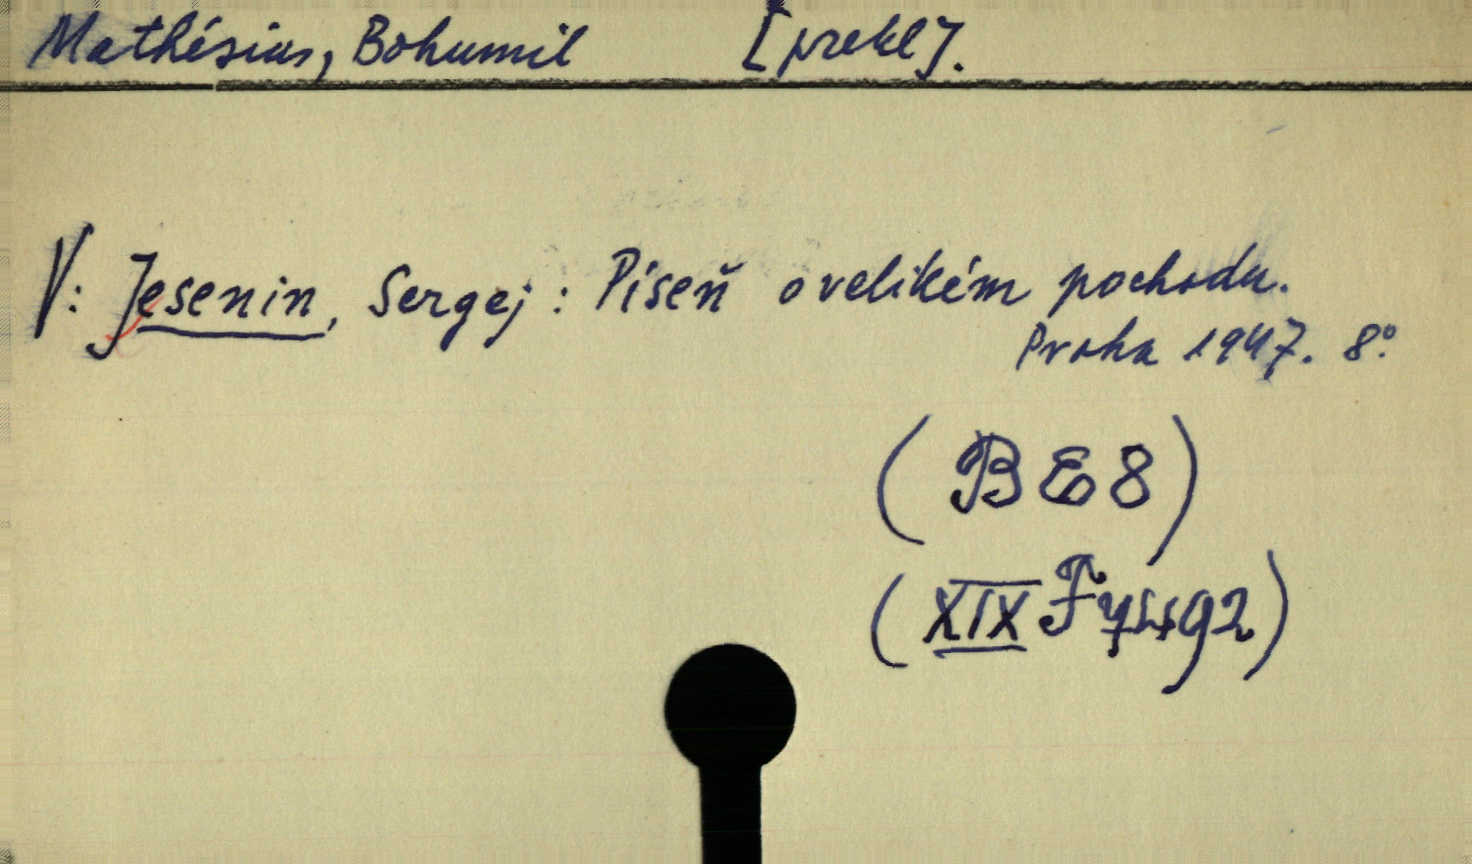 Mathésius, Bohumil [překl].
V: Jesenin, Sergej: Píseň o velikém pochodu.
Praha 1947. 8°.
(B E 8)
(XIX F